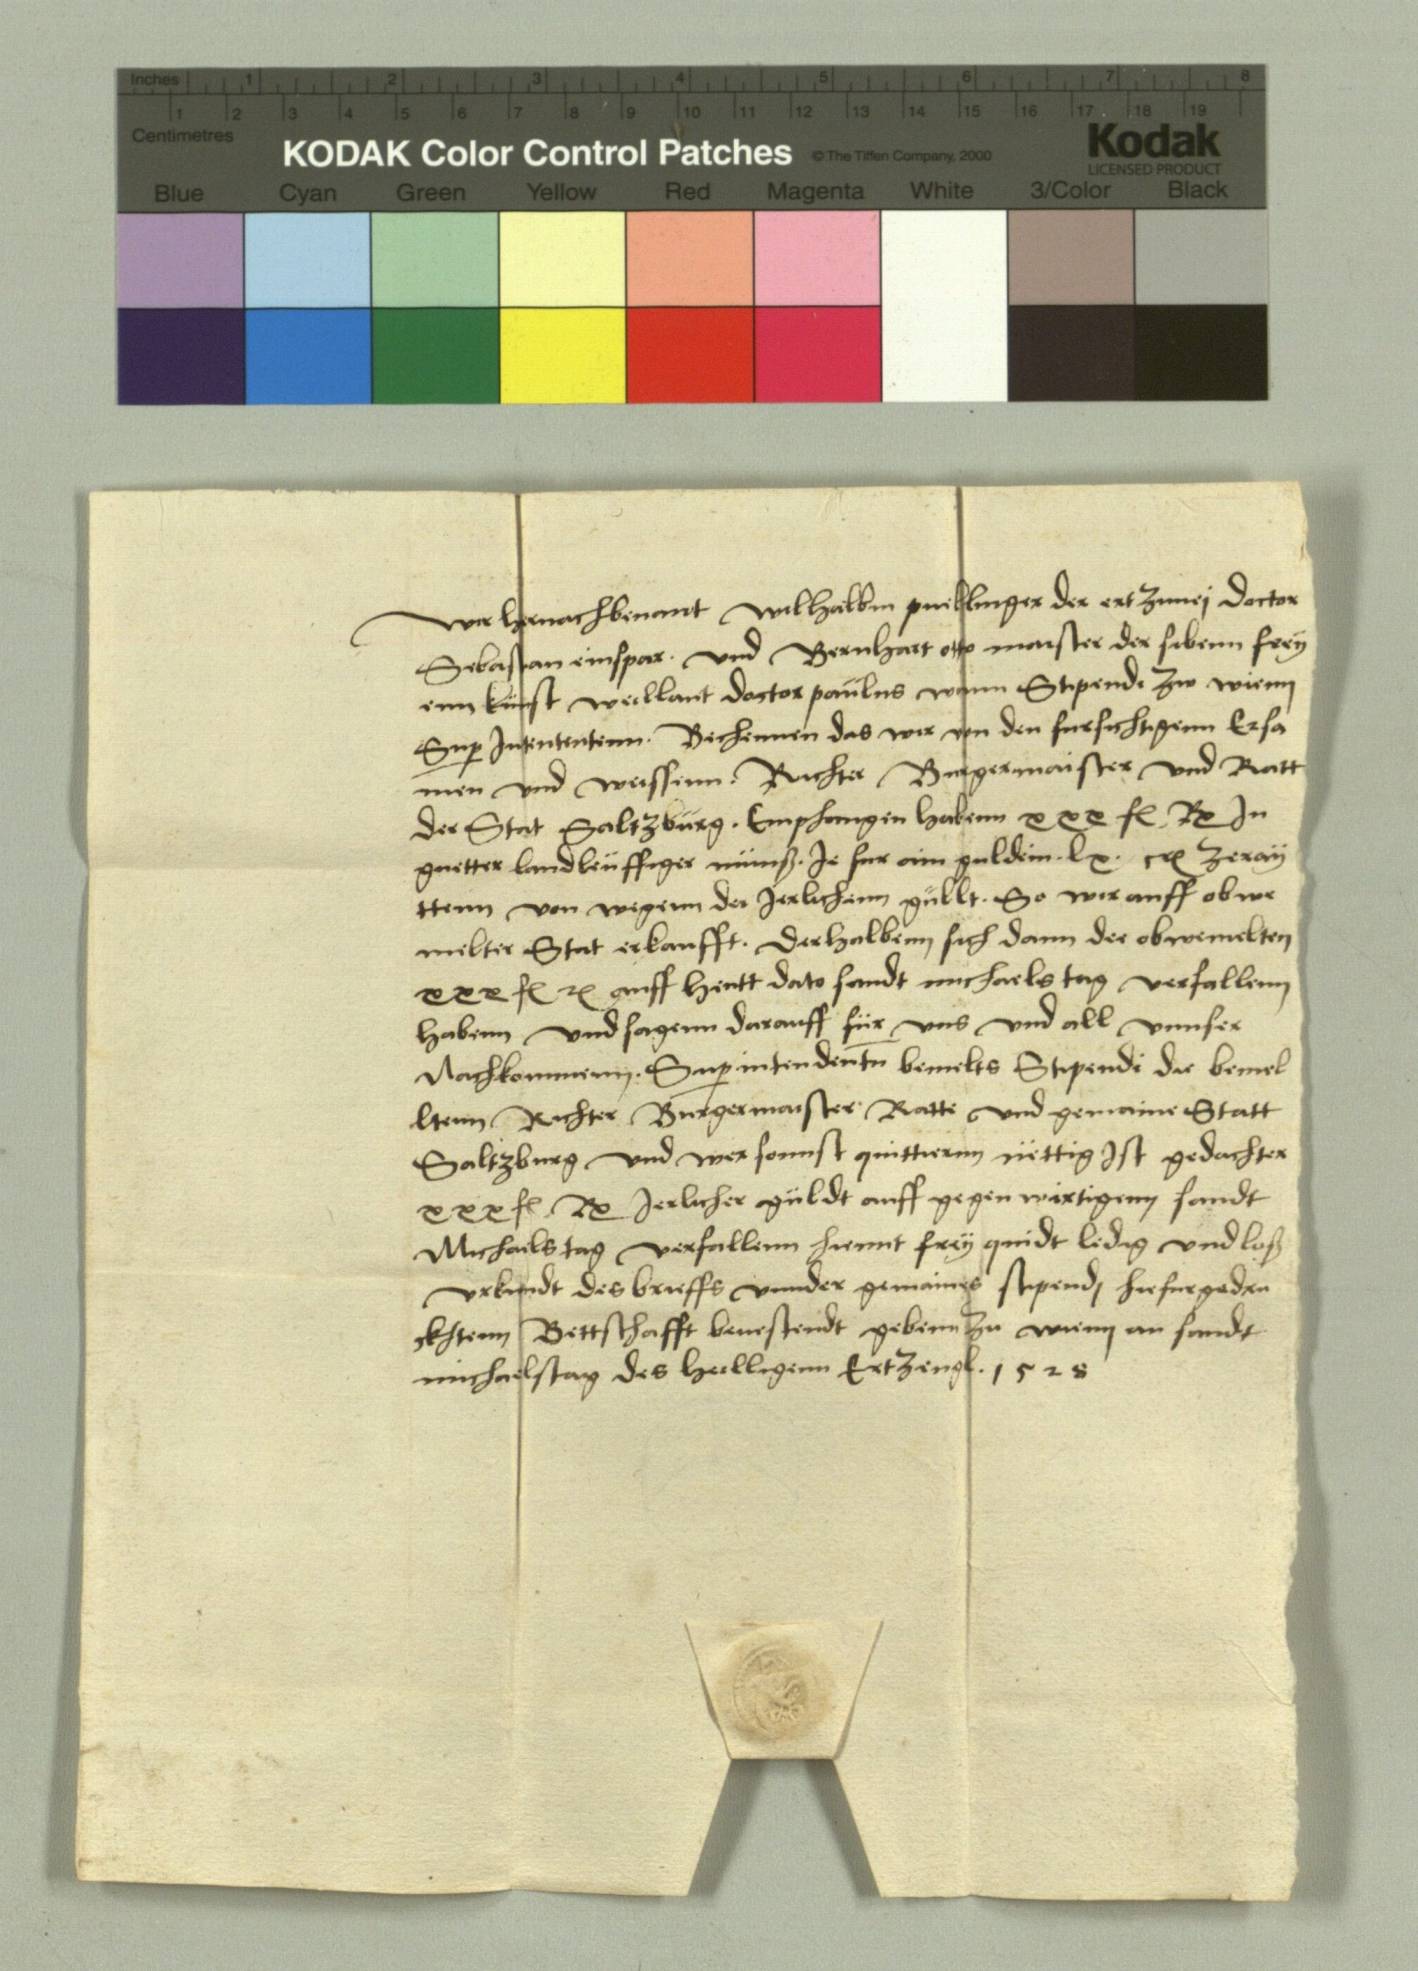 Inches 1 2 3 4 5 6 7 8
1 2 3 4 5 6 7 8 9 10 11 12 13 14 15 16 17 18 19
Centimetres
KODAK Color Control Patches © The Tiffen Company, 2000 Kodak
LICENSED PRODUCT
Blue Cyan Green Yellow Red Magenta White 3/Color Black
Wir hernachbenant Wilhallbm puelinger der ertznnej doctor
Sebastian einspar. vnd Bernhart otto maister der sibenn freÿ
enn künst weillant doctor paülus wann Stipendi zw wienn
Sup Intententenn. Bechennen das wir von den fursichtigenn Ersa
men vnd weissenn. Richter Burgermaister vnd Ratt
der Stat Saltzbürg. Emphangen habenn xxx fl. Rx In
guetter landleüffiger münß. Je fur ain guldein. lx. crx zeraÿ
ttenn von wegenn der Jerlichenn güllt. So wir auff obwe
melter Stat erkaufft. derhalbenn sich dann der obwemelten
xxx fl rx auff heutt dato sandt michaels tag verfallenn
habenn vnd sagenn darauff für vns vnd all vnnser
Nachkommenn. Supintendentn bemelts Stipendi die bemel
ltenn Richter Burgermaister Ratte vnd gemaine Statt
Saltzburg vnd wer sonnst quittierns nöttig Ist gedachter
xxx fl. Rx Jerlicher güldt auff gegenwirtigenn sandt
Michaels tag verfallenn hiemit freÿ quidt ledig vnd loß
vrkundt des brieffs vnnder gemaines stipendj hiefurgedru
ckhtenn Bettschafft bevestendt gebenn zu wienn an sandt
michaelstag des heilligenn Ertzengl. 1528